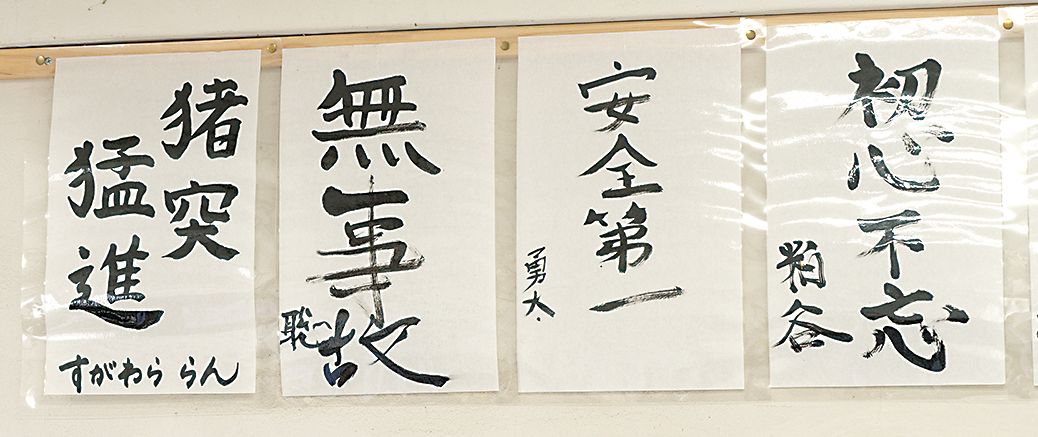 猪突
猛進
すがわら らん
無事故
聡
安全第一
勇太
初心不忘
粕谷